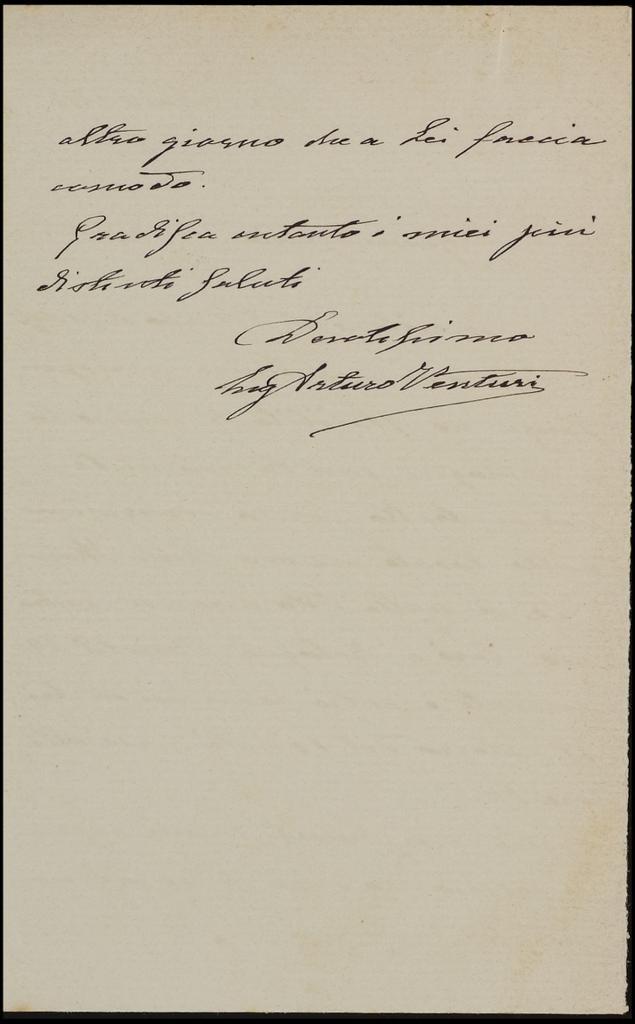 altro giorno che a Lei faccia
comodo.
Gradisca intanto i miei più
distinti saluti
Devotissimo
Ing Arturo Venturi